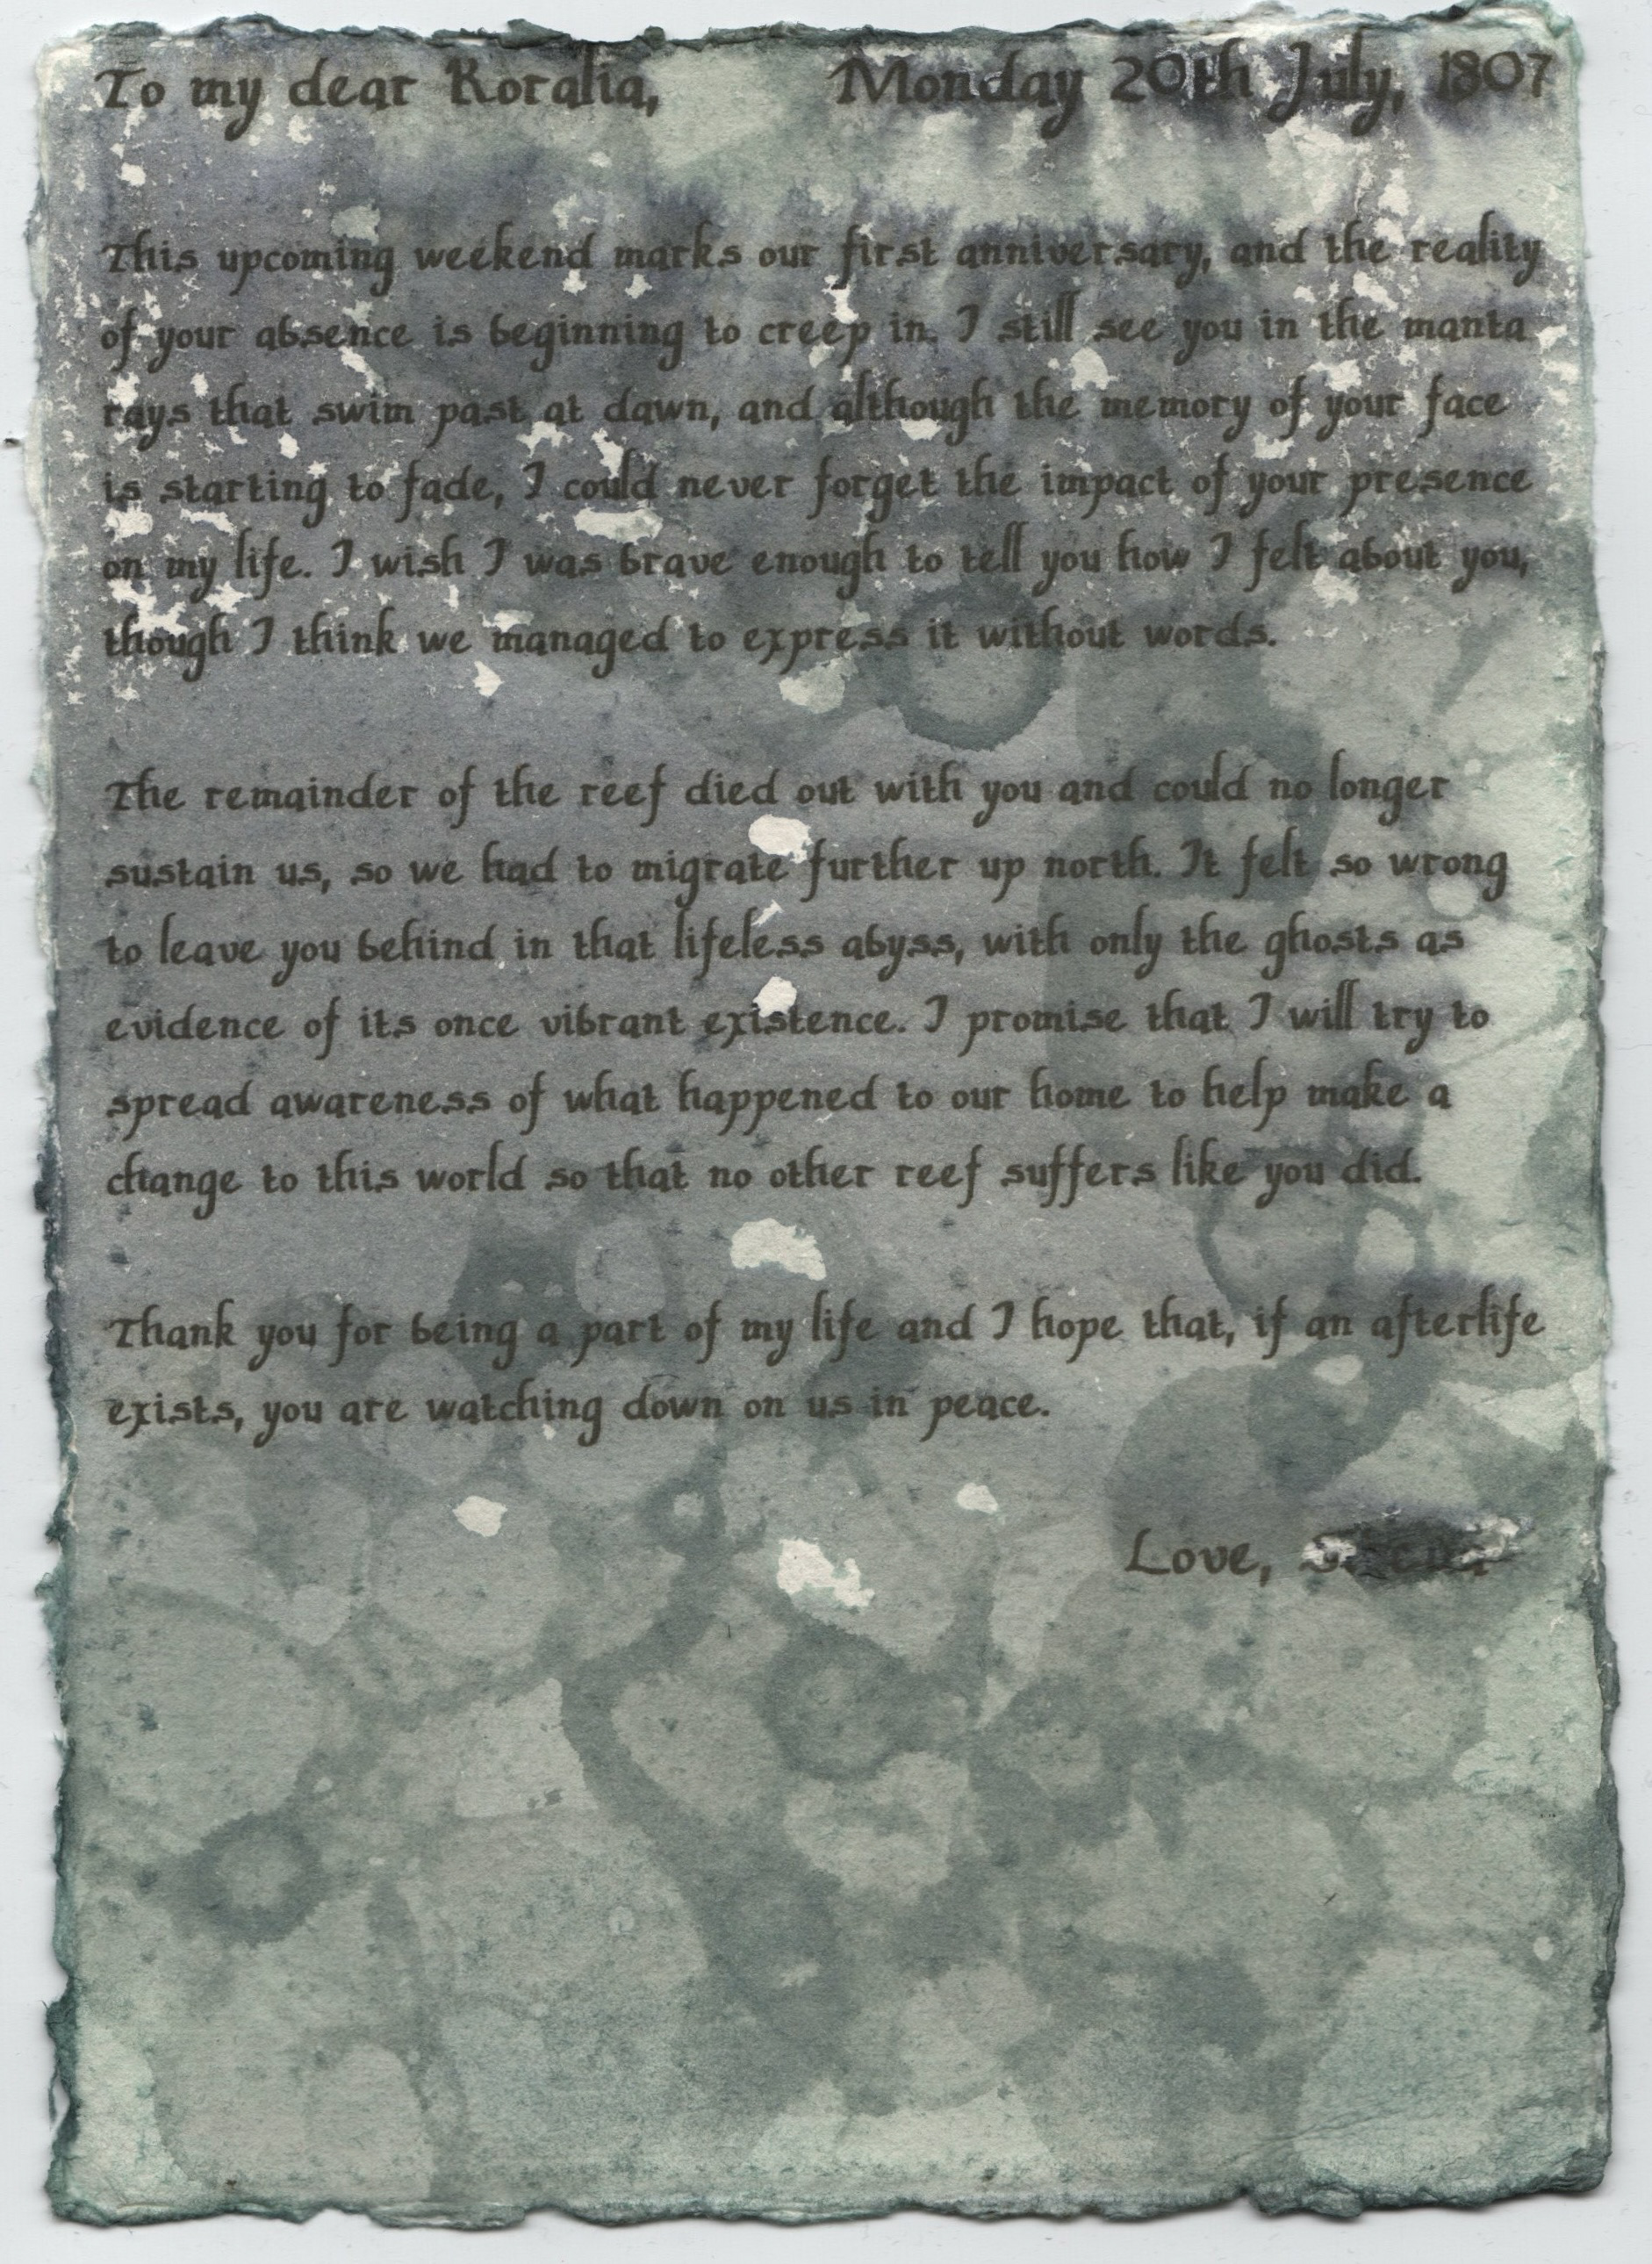 To my dear Koralia, Monday 20th July, 1807
This upcoming weekend marks our first anniversary, and the reality
of your absence is beginning to creep in. I still see you in the manta
rays that swim past at dawn, and although the memory of your face
is starting to fade, I could never forget the impact of your presence
on my life. I wish I was brave enough to tell you how I felt about you,
though I think we managed to express it without words.
The remainder of the reef died out with you and could no longer
sustain us, so we had to migrate further up north. It felt so wrong
to leave you behind in that lifeless abyss, with only the ghosts as
evidence of its once vibrant existence. I promise that I will try to
spread awareness of what happened to our home to help make a
change to this world so that no other reef suffers like you did.
Thank you for being a part of my life and I hope that, if an afterlife
exists, you are watching down on us in peace.
Love,